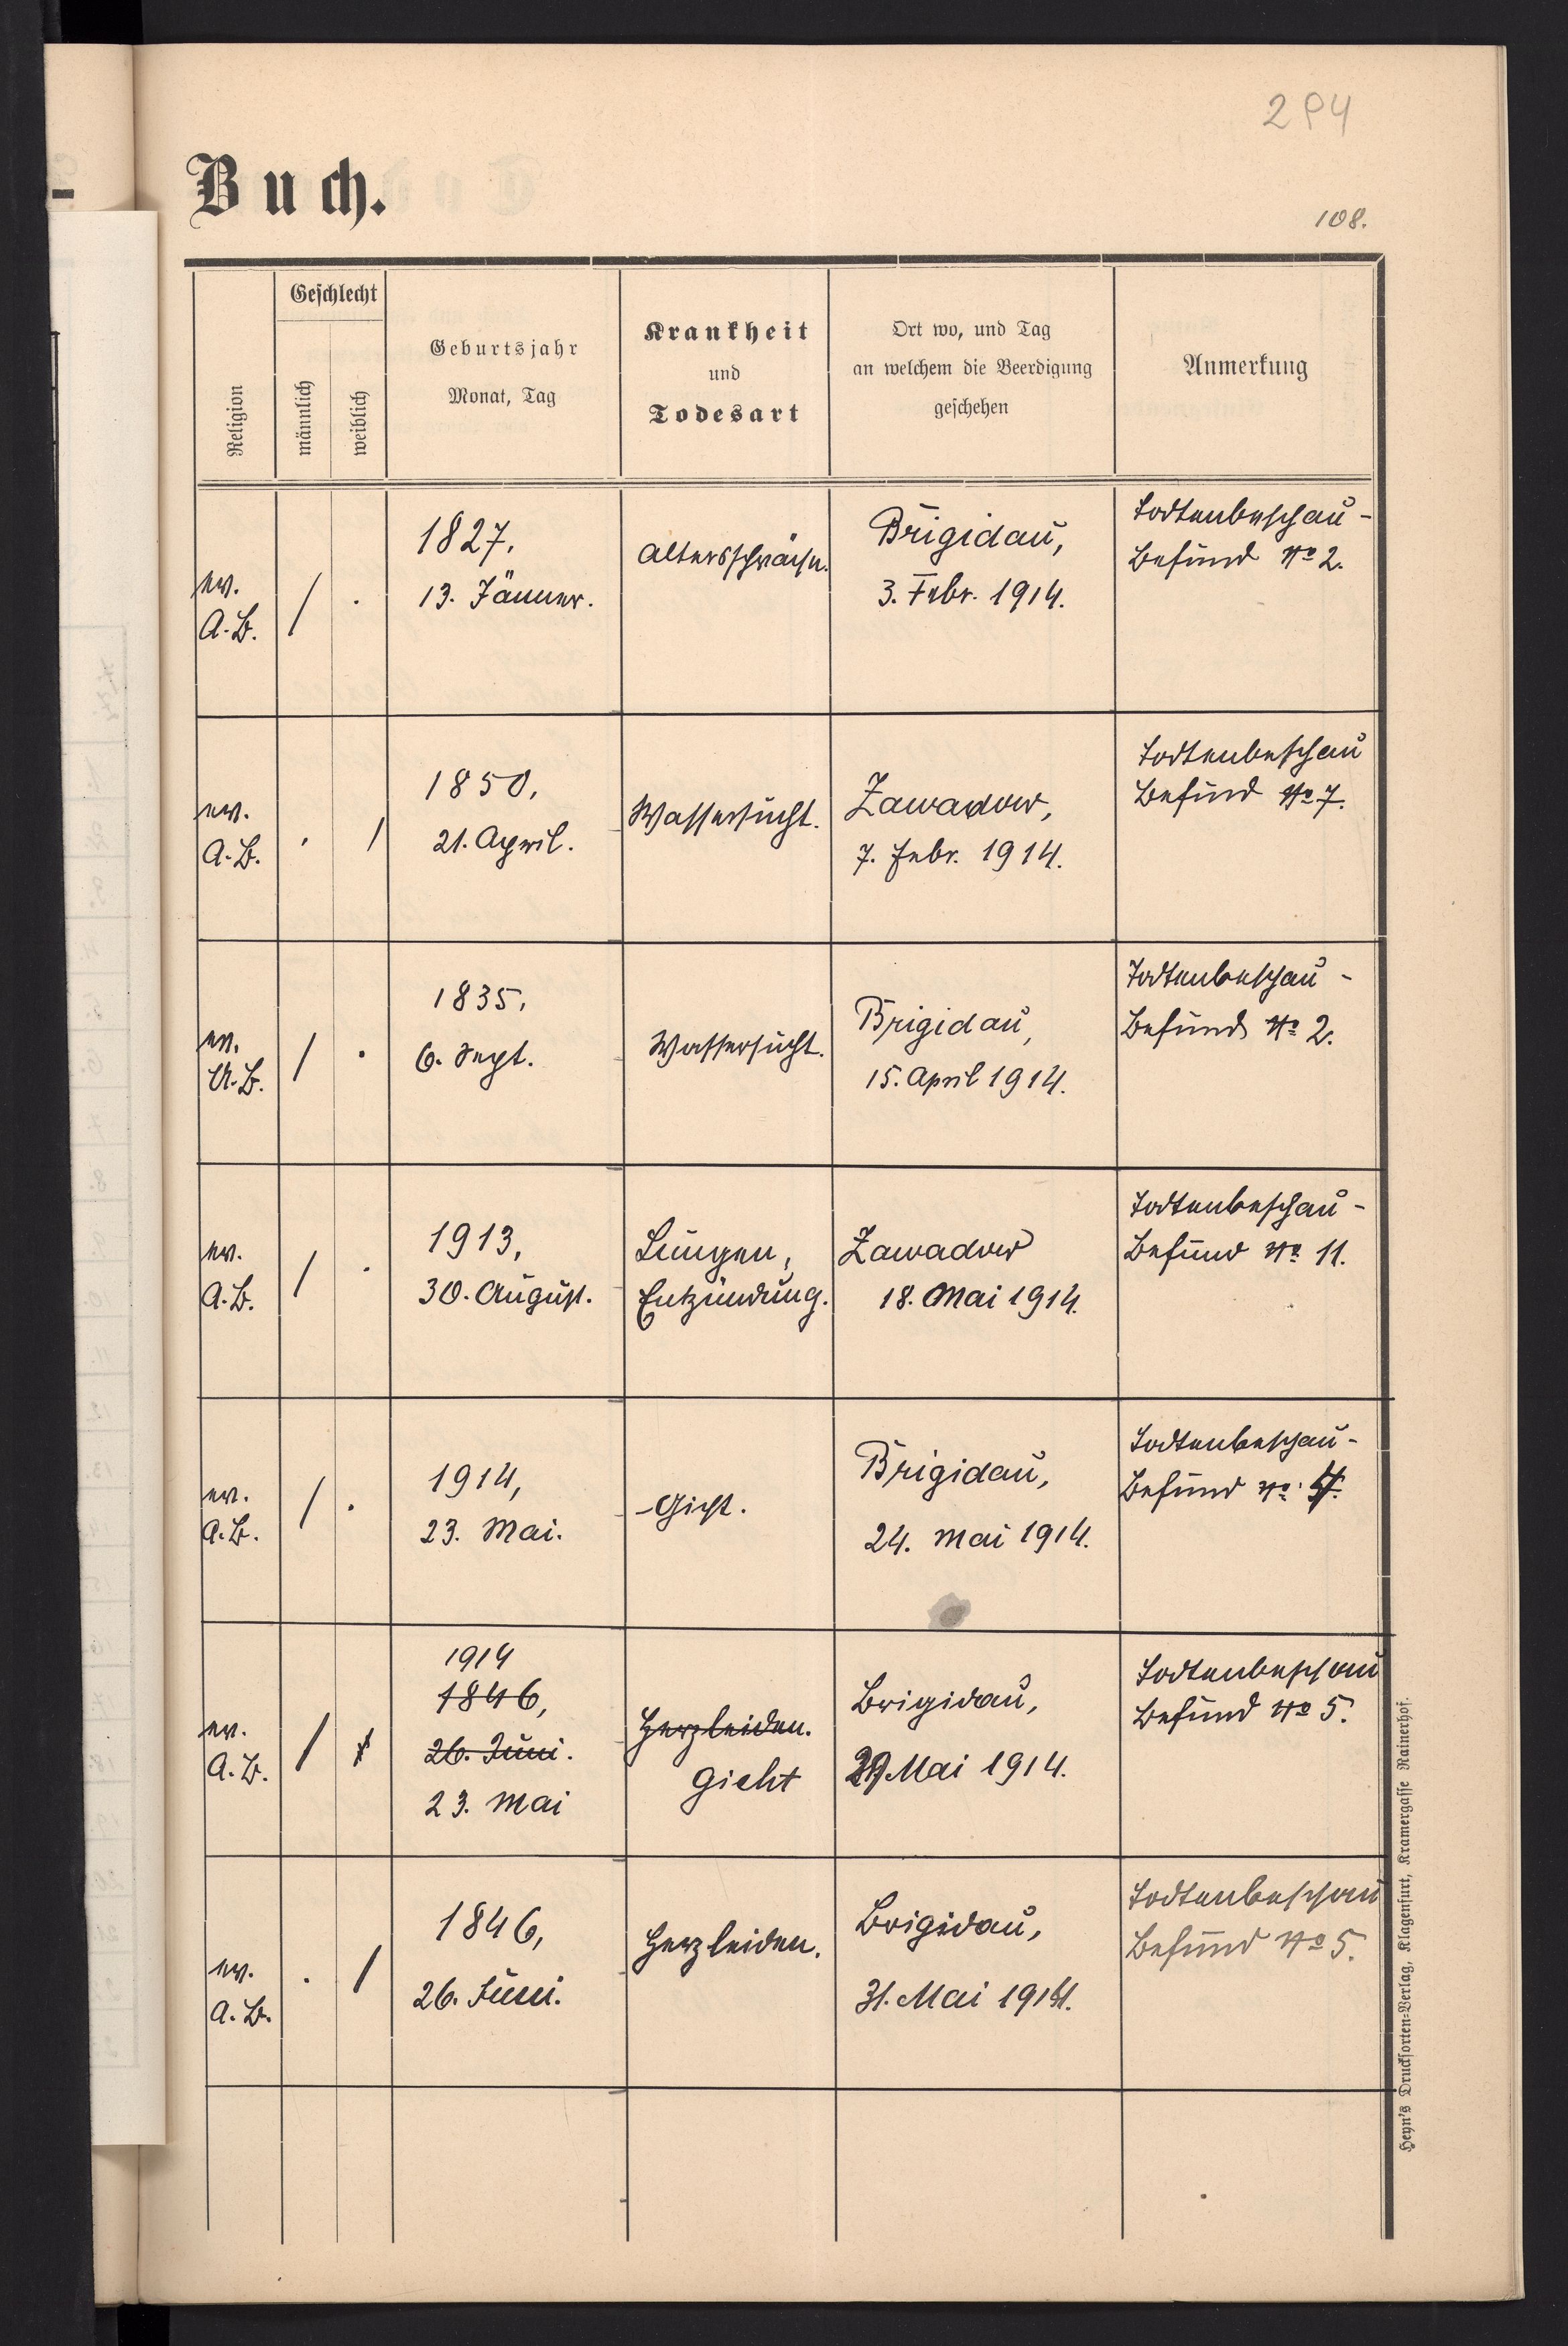 294
Buch.
108.
Religion
Geschlecht
männlich
weiblich
Geburtsjahr
Monat, Tag
Krankheit
und
Todesart
Ort wo, und Tag
an welchem die Beerdigung
geschehen
Anmerkung
ev.
A. B.
/
.
1827,
13. Jänner.
Altersschwäche.
Brigidau,
3. Febr. 1914.
Todtenbeschau-
Befund No 2.
ev.
A. B.
.
/
1850,
21. April.
Wassersucht.
Zawadow,
7. Febr. 1914.
Todtenbeschau
Befund No 7.
ev.
A. B.
/
.
1835,
6. Sept.
Wassersucht.
Brigidau,
15. April 1914.
Todtenbeschau-
Befund No 2.
ev.
A. B.
/
.
1913,
30. August.
Lungen,
Entzündung.
Zawadow
18. Mai 1914.
Todtenbeschau-
Befund No 11.
ev.
A. B.
/
.
1914,
23. Mai.
Gicht.
Brigidau,
24. Mai 1914.
Todtenbeschau-
Befund No 4.
ev.
A. B.
/
1914
1846,
26. Juni.
23. Mai
Herzleiden.
Gicht
Brigidau,
Mai 1914.
Todtenbeschau
Befund No 5.
ev.
A. B.
.
/
1846,
26. Juni.
Herzleiden.
Brigidau,
31. Mai 1914.
Todtenbeschau
Befund No 5.
Heyn's Drucksorten-Verlag, Klagenfurt, Kramergasse Rainerhof.